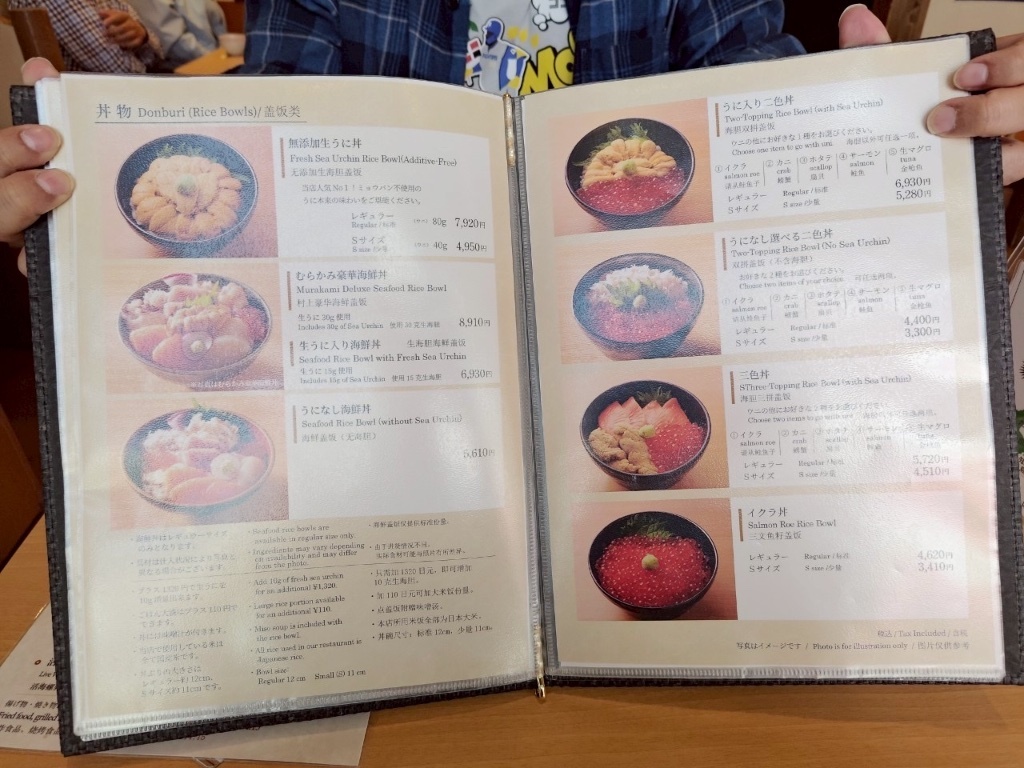 丼物 Donburi (Rice Bowls)/盖饭类
無添加生うに丼
Fresh Sea Urchin Rice Bowl(Additive-Free)
无添加生海胆盖饭
当店人気No1！ミョウバン不使用の
うに本来の味わいをご堪能ください。
レギュラー
Regular/标准
80g 7,920円
Sサイズ
S size/少量
40g 4,950円
むらかみ豪華海鮮丼
Murakami Deluxe Seafood Rice Bowl
村上豪华海鲜盖饭
生うに30g使用
Includes 30g of Sea Urchin 使用30克生海胆 8,910円
生うに入り海鮮丼 生海胆海鲜盖饭
Seafood Rice Bowl with Fresh Sea Urchin
生うに15g使用
Includes 15g of Sea Urchin 使用15克生海胆 6,930円
うになし海鮮丼
Seafood Rice Bowl (without Sea Urchin)
海鲜盖饭（无海胆）
5,610円
・Seafood rice bowls are
available in regular size only.
・Ingredients may vary depending
on availability and may differ
from the photo.
・海鲜盖饭仅提供标准份量。
・Add 10g of fresh sea urchin
for an additional ¥1,320.
・Large rice portion available
for an additional ¥110.
・Miso soup is included with
the rice bowl.
・All rice used in our restaurant is
Japanese rice.
・Bowl size:
Regular 12 cm Small 11 cm
・只需加1320日元，即可增加
10克生海胆。
・加110日元可加大米饭份量。
・点盖饭附赠味增汤。
・本店所用米饭全部为日本大米。
・丼碗尺寸：标准12cm、少量11cm
うに入り二色丼
Two-Topping Rice Bowl (with Sea Urchin)
海胆双拼盖饭
ウニの他にお好きな1種をお選びください。
Choose one item to go with uni. 海胆以外可任选一种。
①イクラ ②カニ ③ホタテ ④サーモン ⑤生マグロ
salmon roe crab scallop salmon tuna
螃蟹 扇贝 鲑鱼 金枪鱼
レギュラー Regular/标准 6,930円
Sサイズ S size/少量 5,280円
うになし選べる二色丼
Two-Topping Rice Bowl (No Sea Urchin)
双拼盖饭（不含海胆）
お好きな2種をお選びください。
Choose two items of your choice. 可任选两种。
①イクラ ②カニ ③ホタテ ④サーモン ⑤生マグロ
salmon roe crab scallop salmon tuna
螃蟹 扇贝 鲑鱼 金枪鱼
レギュラー Regular/标准 4,400円
Sサイズ S size/少量 3,300円
三色丼
SThree-Topping Rice Bowl (with Sea Urchin)
海胆三拼盖饭
ウニの他にお好きな2種をお選びください。
Choose two items to go with uni.
①イクラ ②カニ ③ホタテ ④サーモン ⑤生マグロ
salmon roe crab scallop salmon tuna
螃蟹 扇贝 鲑鱼
レギュラー Regular/标准 5,720円
Sサイズ S size/少量 4,510円
イクラ丼
Salmon Roe Rice Bowl
三文鱼籽盖饭
レギュラー Regular/标准 4,620円
Sサイズ S size/少量 3,410円
税込 / Tax Included / 含税
写真はイメージです / Photo is for illustration only / 图片仅供参考